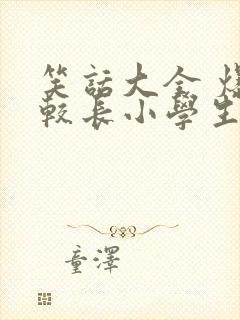 笑話大全 爆
較長小學生
童澤